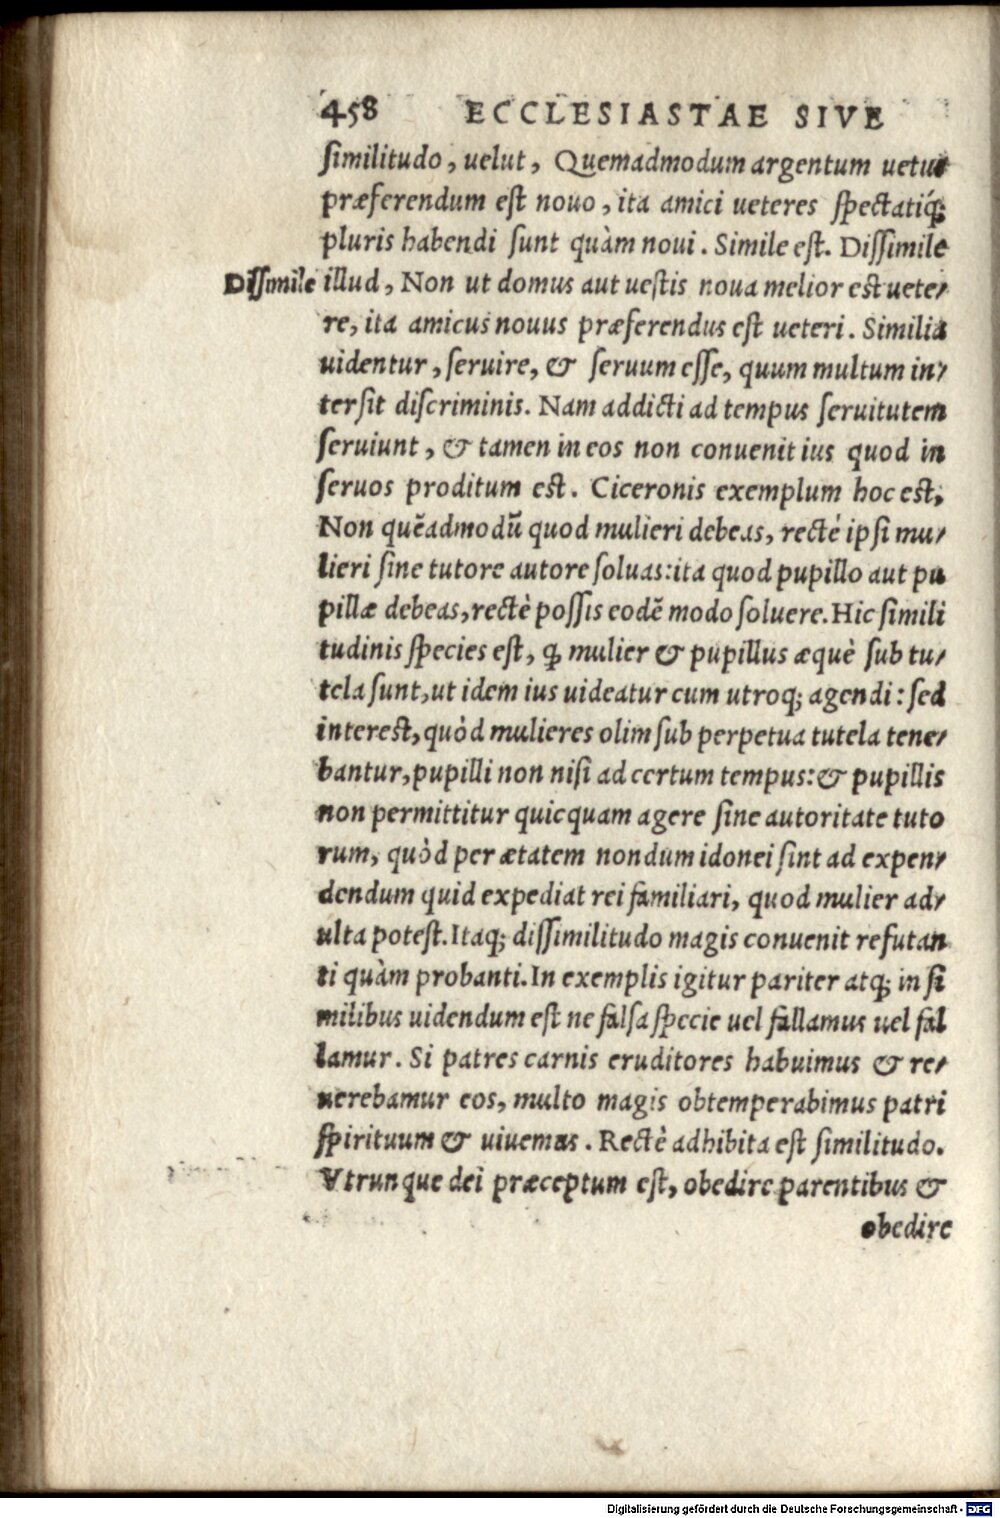 458 ECCLESIASTAE SIVE
similitudo, uelut, Quemadmodum argentum uetus
præferendum est nouo, ita amici ueteres spectatiq́;
pluris habendi sunt quàm noui. Simile est. Dissimile
Dissimile illud, Non ut domus aut uestis noua melior est uete/
re, ita amicus nouus præferendus est ueteri. Similia
uidentur, seruire, & seruum esse, quum multum in/
tersit discriminis. Nam addicti ad tempus seruitutem
seruiunt, & tamen in eos non conuenit ius quod in
seruos proditum est. Ciceronis exemplum hoc est,
Non quẽadmodũ quod mulieri debeas, rectè ipsi mu/
lieri sine tutore autore soluas: ita quod pupillo aut pu
pillæ debeas, rectè possis eodẽ modo soluere. Hic simili
tudinis species est, ꝙ mulier & pupillus æquè sub tu/
tela sunt, ut idem ius uideatur cum utroq; agendi: sed
interest, quòd mulieres olim sub perpetua tutela tene/
bantur, pupilli non nisi ad certum tempus: & pupillis
non permittitur quicquam agere sine autoritate tuto
rum, quòd per ætatem nondum idonei sint ad expen/
dendum quid expediat rei familiari, quod mulier ad/
ulta potest. Itaq; dissimilitudo magis conuenit refutan
ti quàm probanti. In exemplis igitur pariter atq; in si
milibus uidendum est ne falsa specie uel fallamus uel fal
lamur. Si patres carnis eruditores habuimus & re/
uerebamur eos, multo magis obtemperabimus patri
spirituum & uiuemus. Rectè adhibita est similitudo.
Vtrunque dei præceptum est, obedire parentibus &
obedire
Digitalisierung gefördert durch die Deutsche Forschungsgemeinschaft - DFG